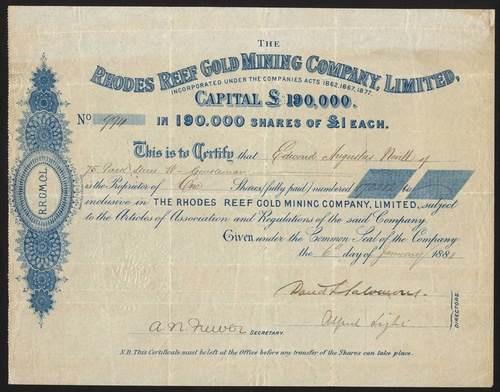 THE
RHODES REEF GOLD MINING COMPANY, LIMITED,
INCORPORATED UNDER THE COMPANIES ACTS 1862, 1867, 1877.
CAPITAL £ 190,000.
IN 190.000 SHARES OF £1 EACH.
No 994
This is to Certify that Edward Augustus of
75 Gentleman
is the Proprietor of One Shares (fully paid) numbered to
inclusive in THE RHODES REEF GOLD MINING COMPANY, LIMITED, subject
to the Articles of Association and Regulations of the said Company.
Given under the Common Seal of the Company
the 6th day of January 188
R.R.G.M.Co.L.
David L Salomons
Alfred
DIRECTORS.
SECRETARY.
N.B. This Certificate must be left at the Office before any transfer of the Shares can take place.